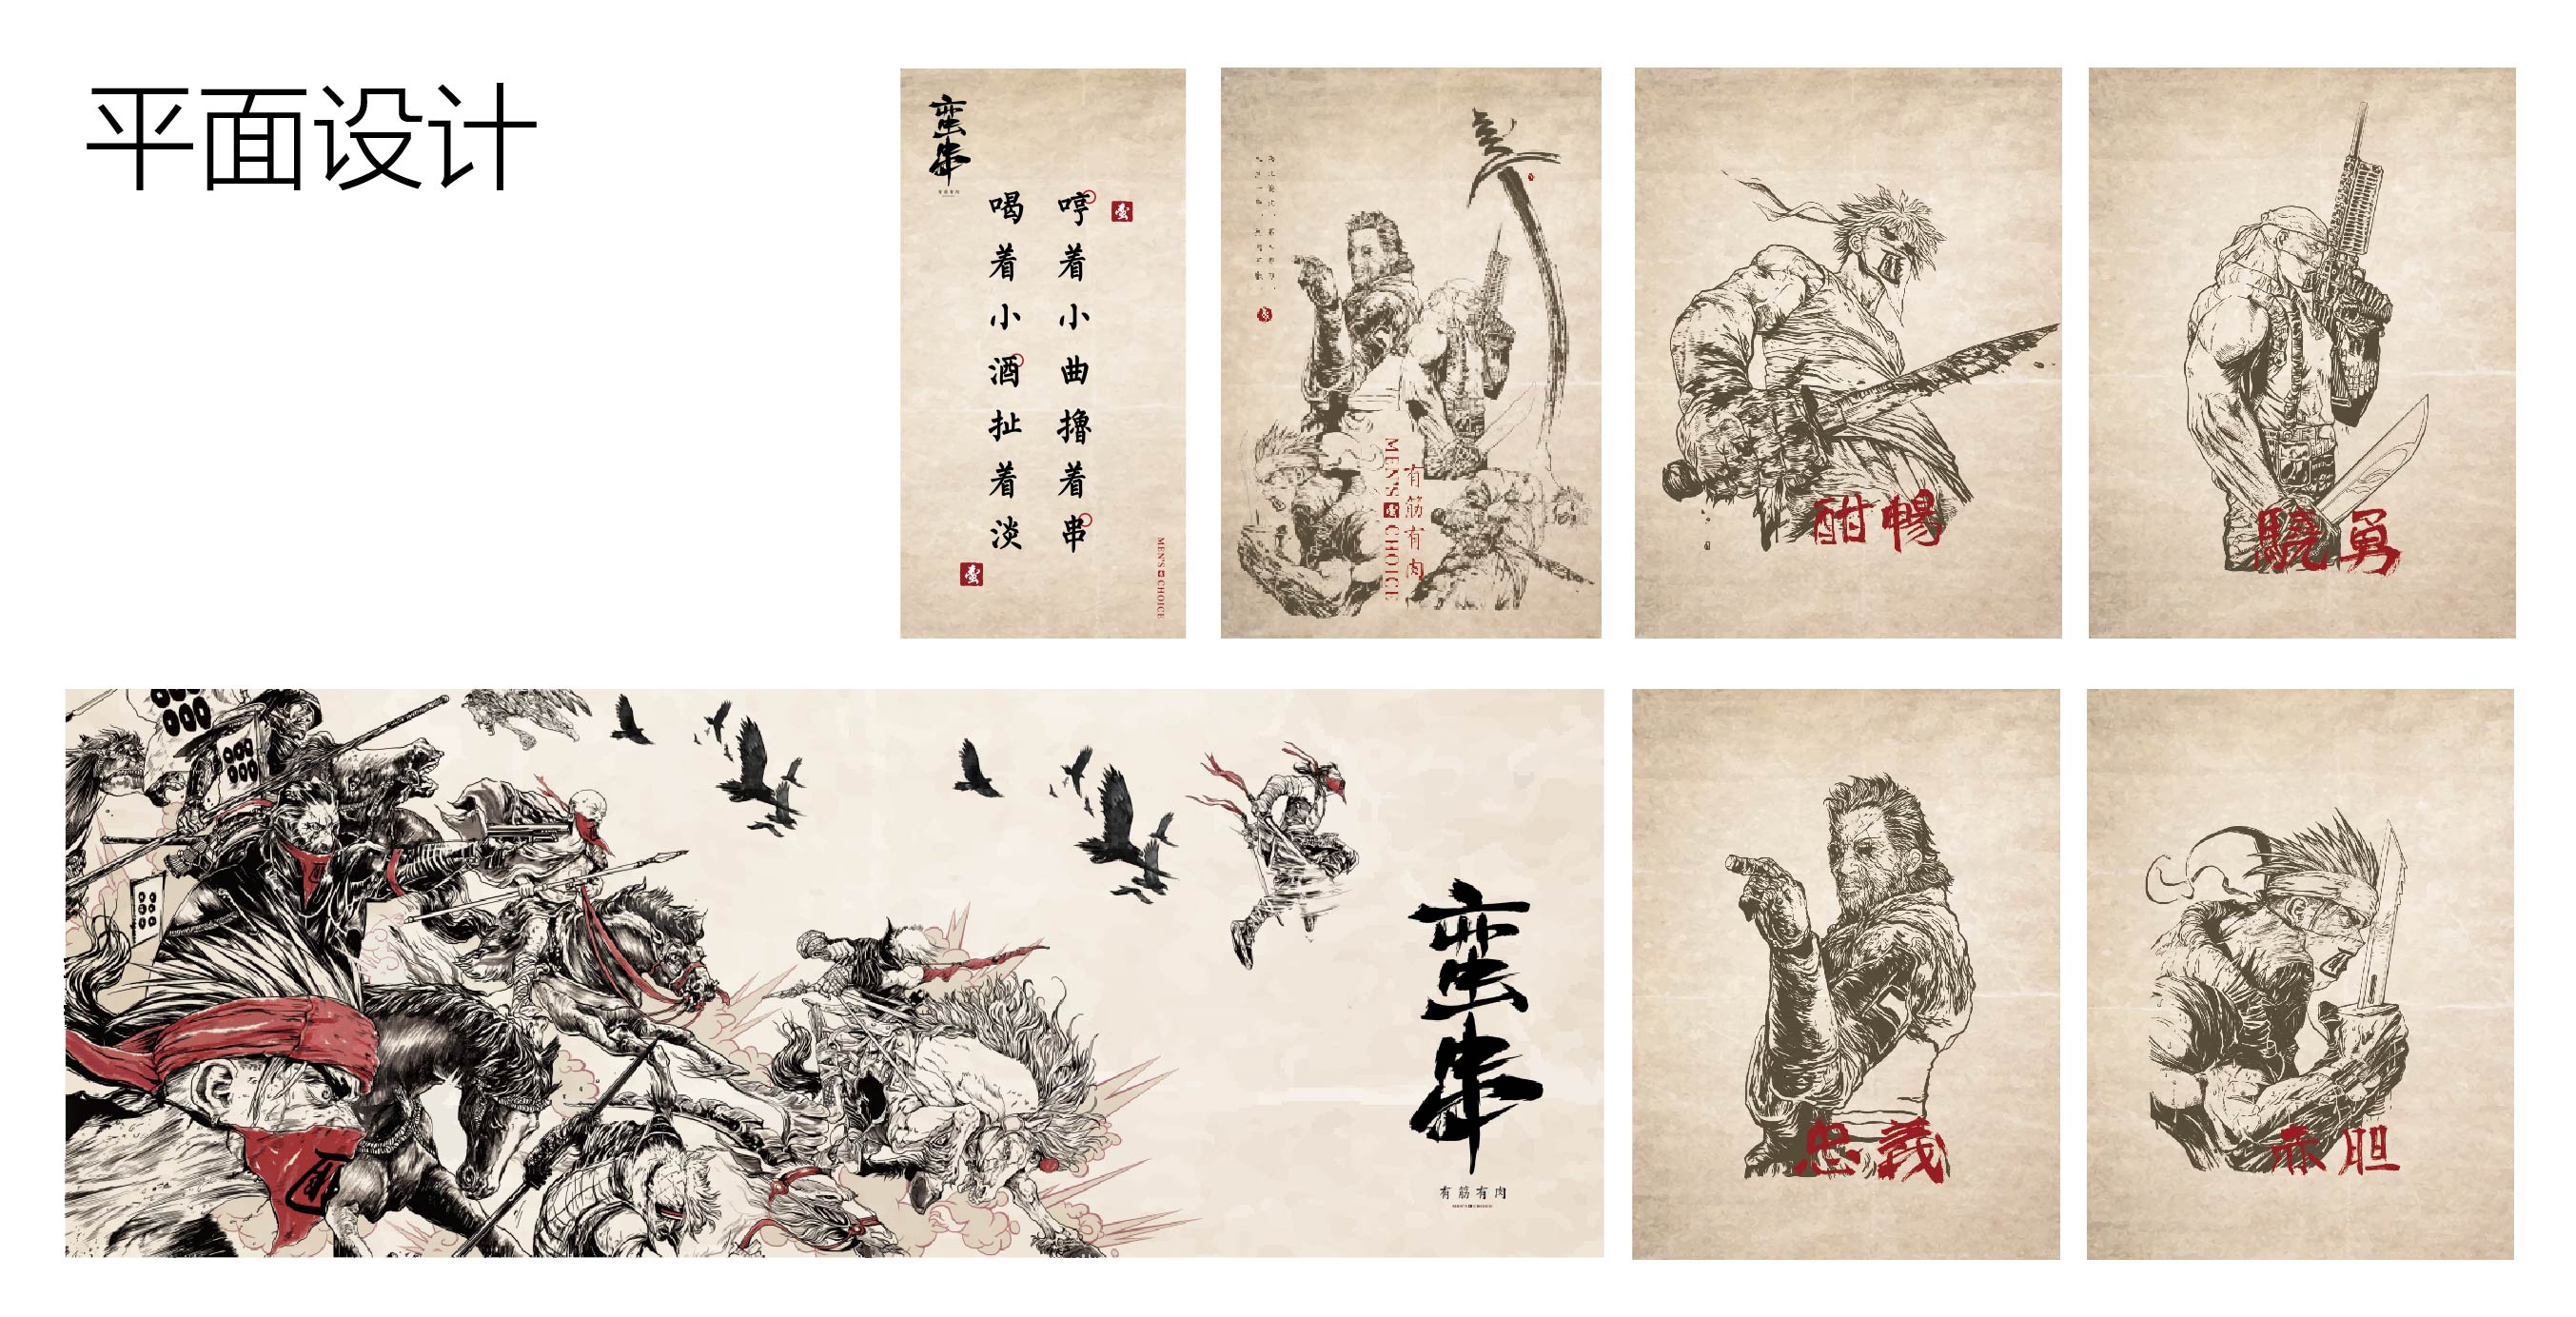 平面设计
蛮串
哼着小曲撸着串
喝着小酒扯着淡
MEN'S CHOICE
有筋有肉
MEN'S CHOICE
酣暢
驍勇
蛮串
有筋有肉
MEN'S CHOICE
忠義
赤胆